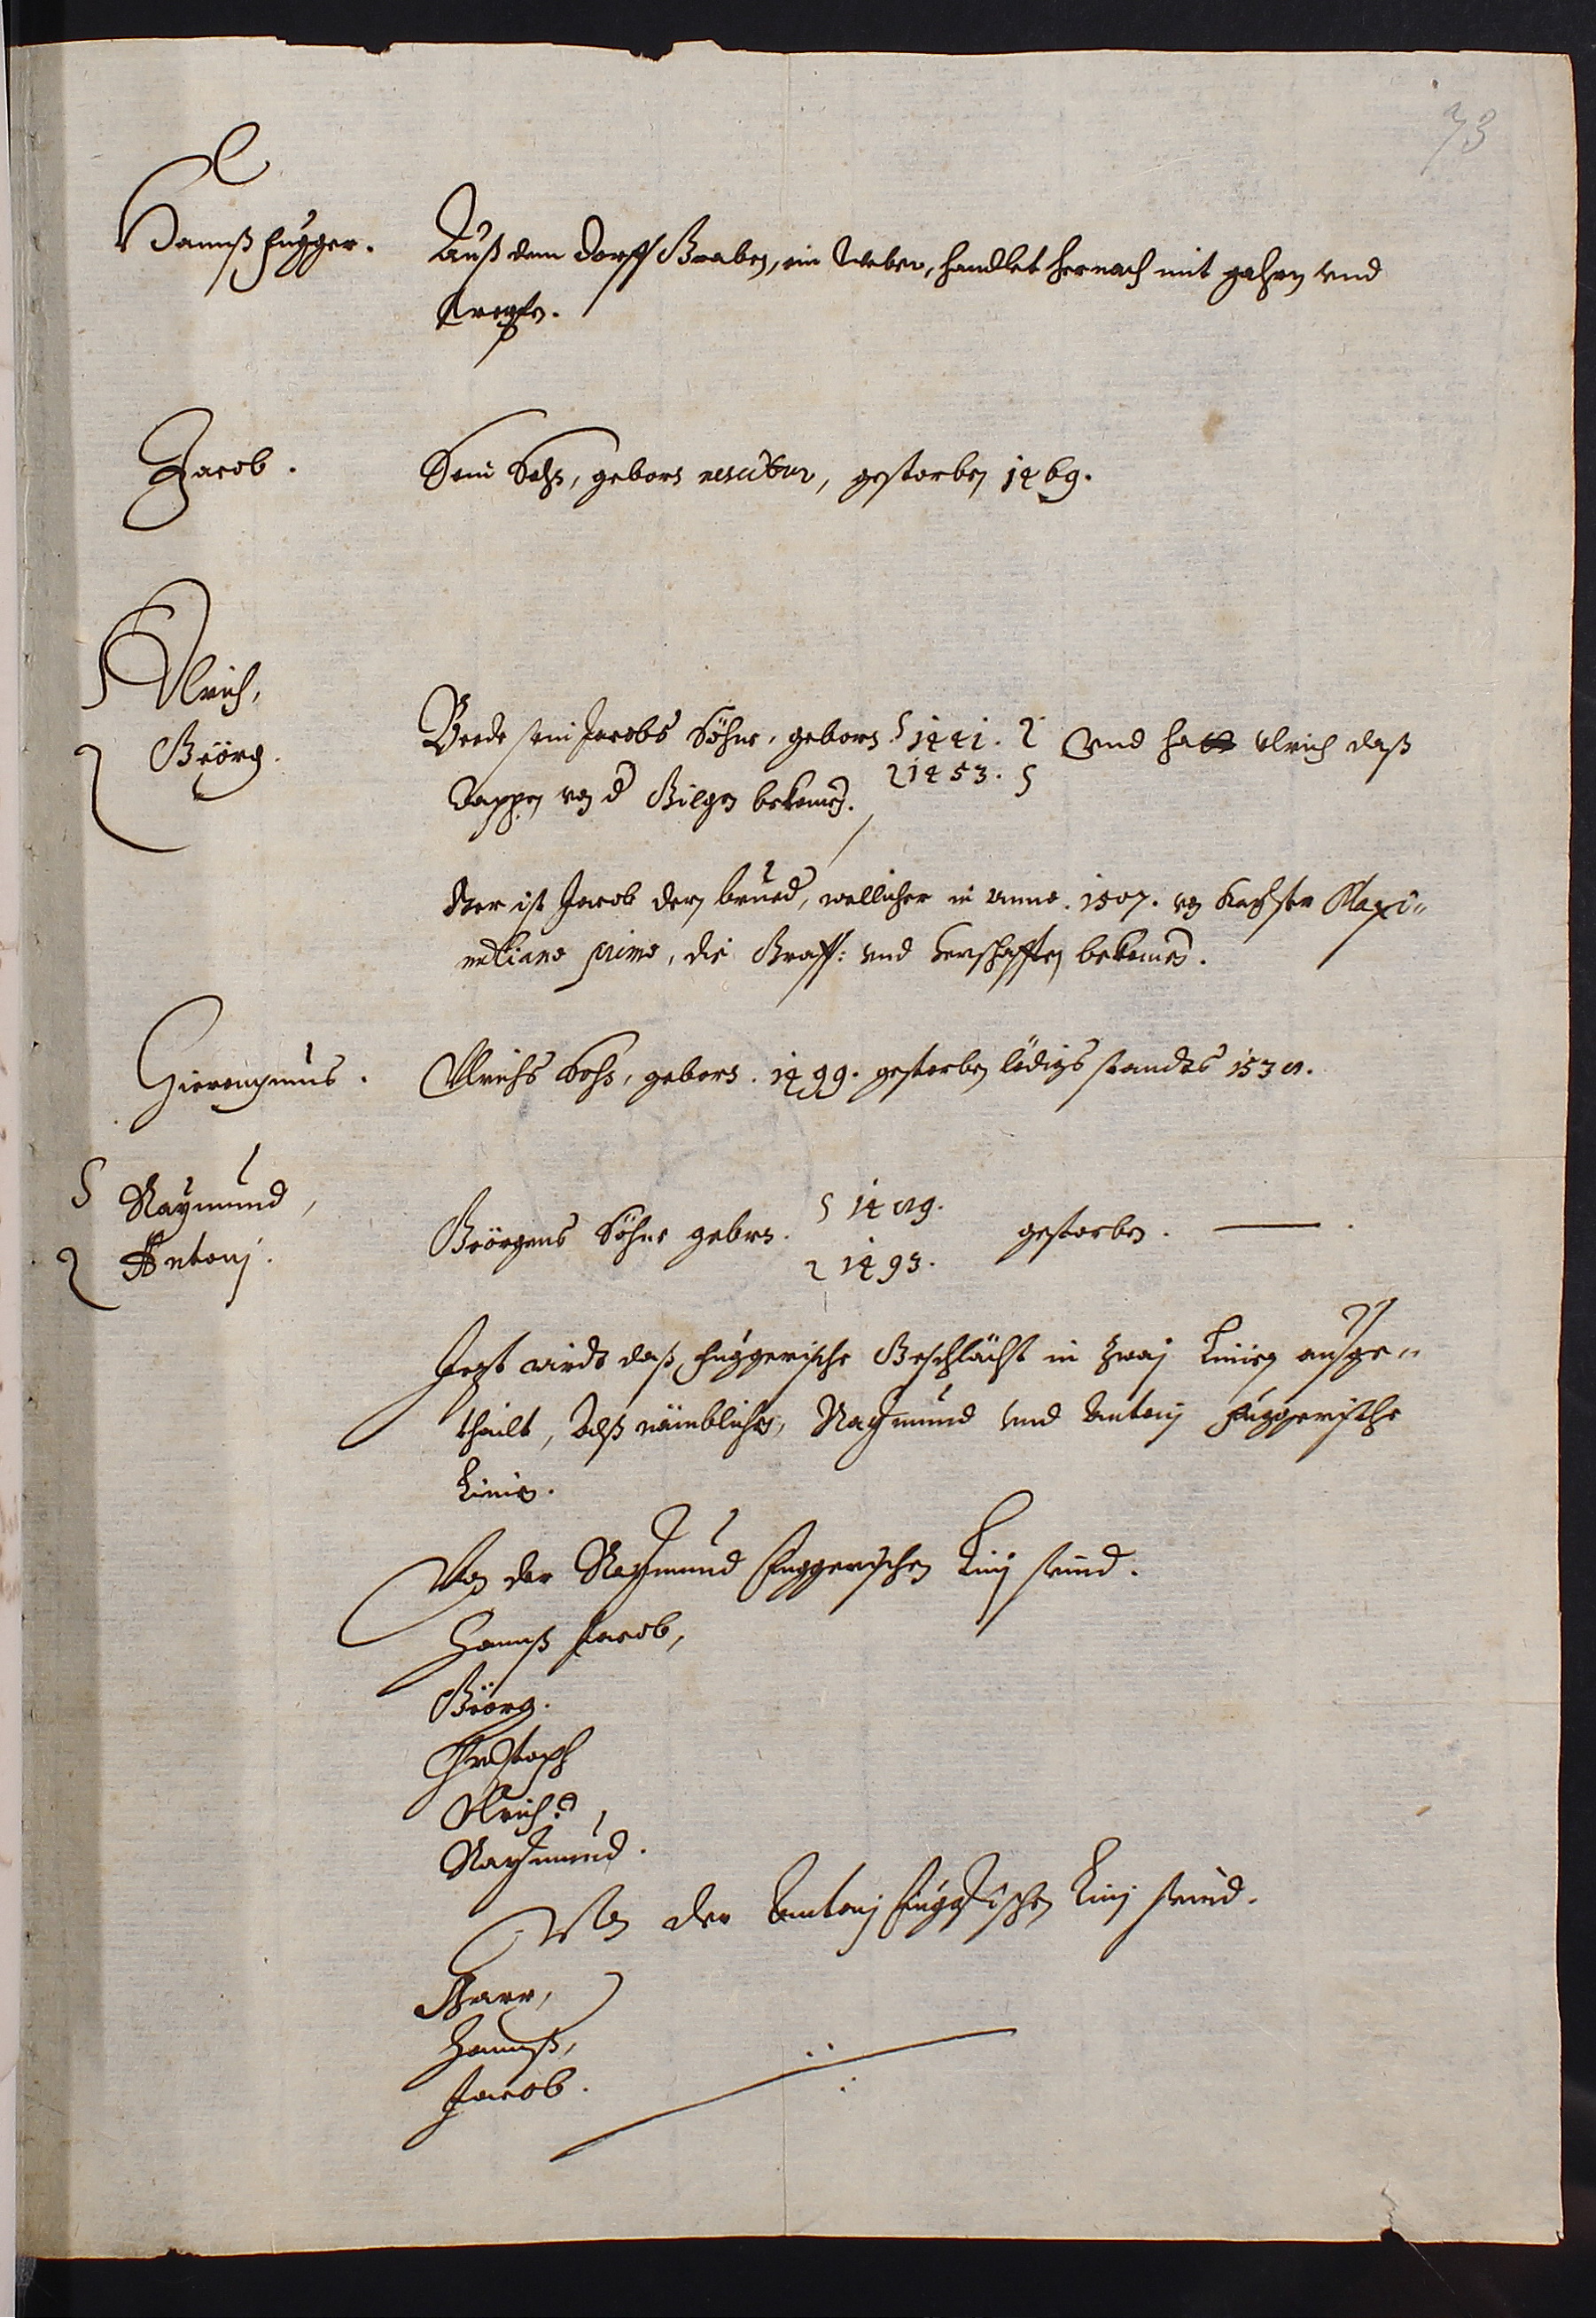 73
Hannß Fugger. Auß dem Dorff Graben, ein Weber, handlet hernach mit gahrn vnd
Jacob. Sein Sohn, geborn nescitur, gestorben 1469.
Vlrich,
Geörg. Beede sein Jacobs Söhne, geborn 1441. Vnd hatt Vlrich daß
1453.
Wappen von d Gilgen bekomen.
Der ist Jacob dern brued, wellicher in Anno. 1507. von Kayser Maxi„
miliano primo, die Graff: vnd Herschafften bekomen.
Hieronymus. Vlrichs Sohn, geborn. 1499. gestorben lödigs standts 1538.
Raymund, 1489.
Geörgens Söhne geborn. gestorben.
Antonj. 1493.
Jezt wirdt daß Fuggerische Geschlächt in zwaj Linien außge„
thailt, Alß nämblichen, Raymund vnd Antonj Fuggerische
Linien.
Von der Raymund Fuggerischen Linj seind.
Hannß Jacob,
Geörg.
Christoph
Vlrich.
Raymund.
Von der Antonj Fuggerischen Linj seind.
Marx,
Hannß,
Jacob.